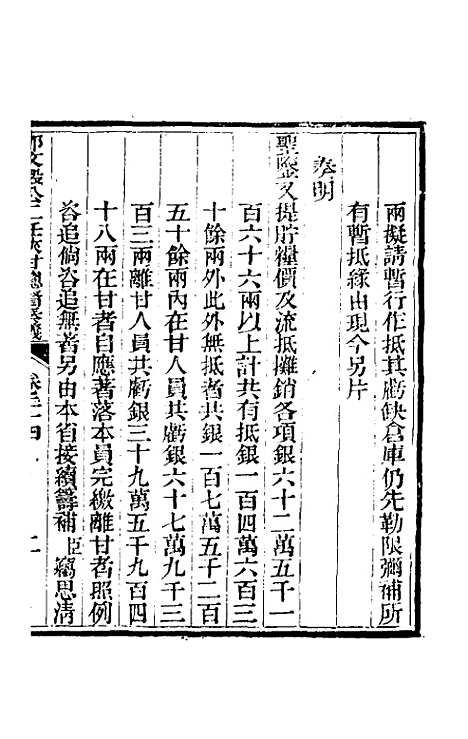 兩擬請暫行作抵其虧缺倉庫仍先勒限彌補所
有暫抵緣由現今另片
奏明
聖鑒又提貯糧價及流抵攤銷各項銀六十二萬五千一
百六十六兩以上計共有抵銀一百四萬六百三
十餘兩外此外無抵者共銀一百七萬五千二百
五十餘兩內在甘人員共虧銀六十七萬九千三
百三兩離甘人員共虧銀三十九萬五千九百四
十八兩在甘者自應著落本員完繳離甘者照例
咨追倘咨追無著另由本省接續籌補臣竊思清
那文毅公二任陝甘總督奏議
卷三十四
二